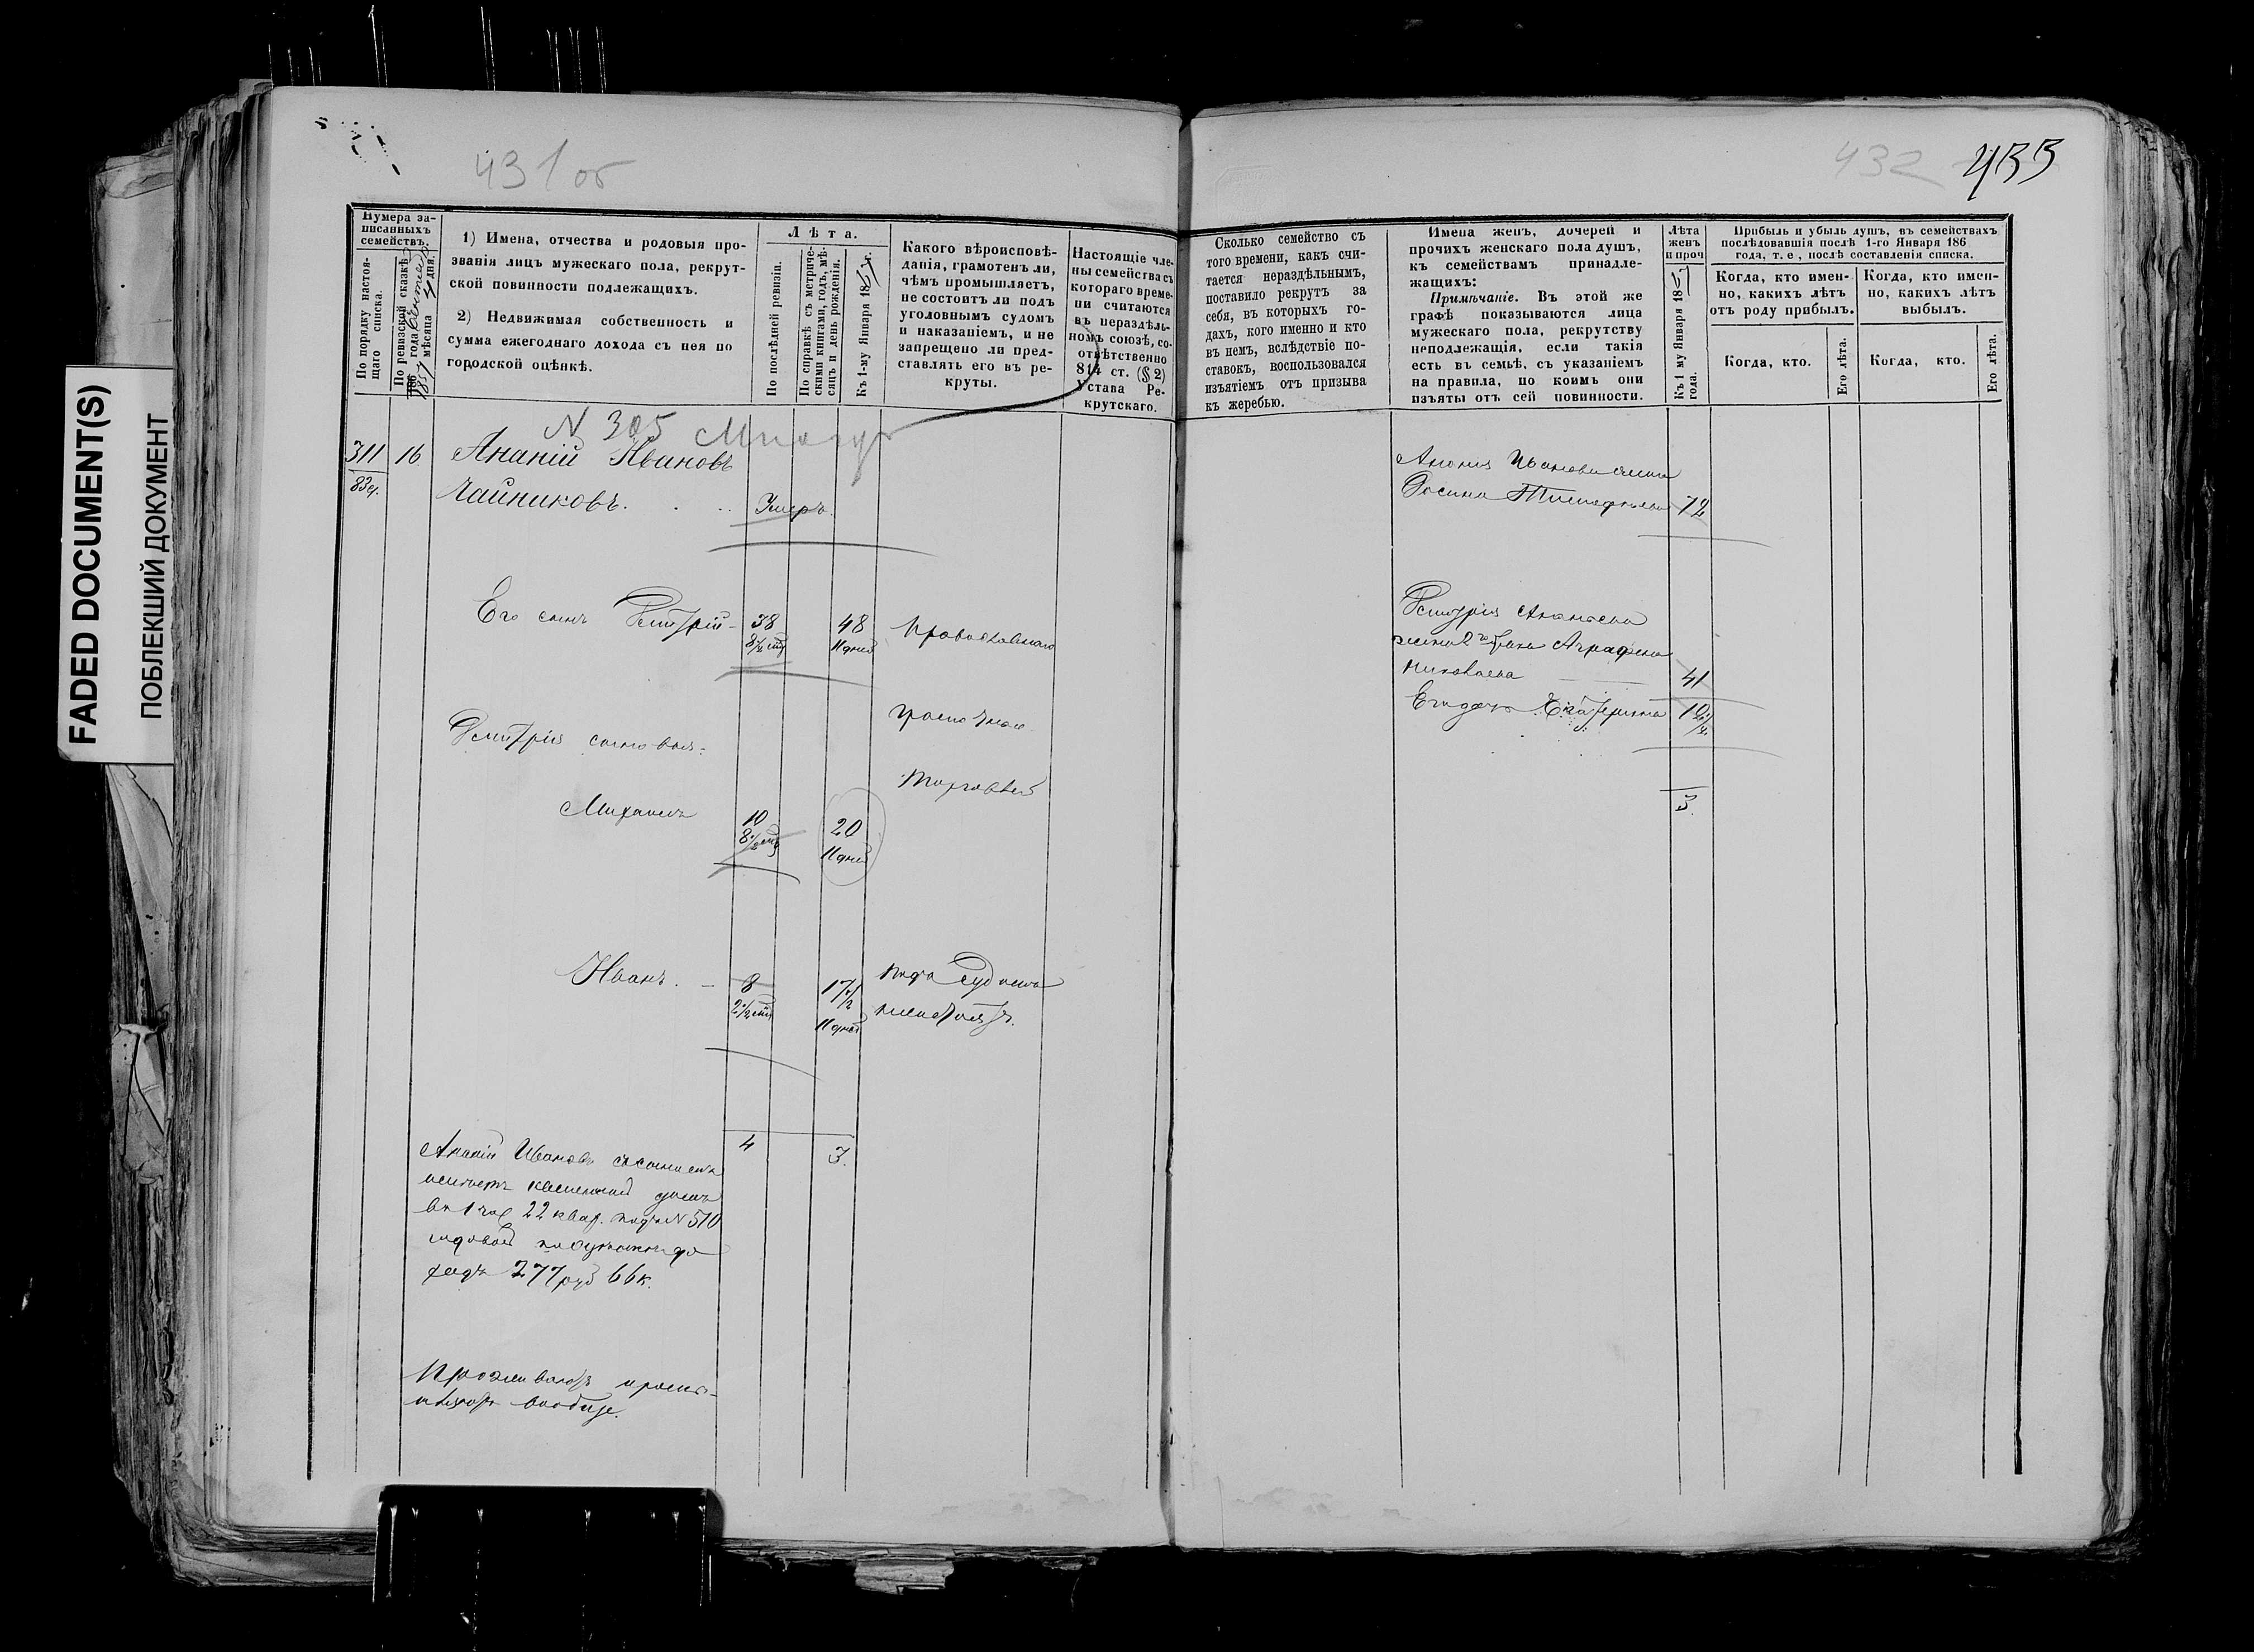 FADED DOCUMENT(S)
ПОБЛЕКШИЙ ДОКУМЕНТ
431 об
432
433
Нумера за-
писанныхъ
семействъ.
По порядку настоя-
щаго списка.
По ревизской сказкѣ
186 года
1857 мѣсяца 4 дня.
1) Имена, отчества и родовыя про-
званія лицъ мужескаго пола, рекрут-
ской повинности подлежащихъ.
2) Недвижимая собственность и
сумма ежегоднаго дохода съ нея по
городской оцѣнкѣ.
Лѣта.
По послѣдней ревизіи.
По справкѣ съ метриче-
скими книгами, годъ, мѣ-
сяцъ и день рожденія.
Къ 1-му Января 18 г.
Какого вѣроисповѣ-
данія, грамотенъ ли,
чѣмъ промышляетъ,
не состоитъ ли подъ
уголовнымъ судомъ
и наказаніемъ, и не
запрещено ли пред-
ставлять его въ ре-
круты.
Настоящіе чле-
ны семейства съ
котораго време-
ни считаются
въ нераздѣль-
номъ союзѣ, со-
отвѣтственно
814 ст. (§ 2)
Устава Ре-
крутскаго.
Сколько семейство съ
того времени, какъ счи-
тается нераздѣльнымъ,
поставило рекрутъ за
себя, въ которыхъ го-
дахъ, кого именно и кто
въ немъ, вслѣдствіе по-
ставокъ, воспользовался
изъятіемъ отъ призыва
къ жеребью.
Имена женъ, дочерей и
прочихъ женскаго пола душъ,
къ семействамъ принадле-
жащихъ:
Примѣчаніе. Въ этой же
графѣ показываются лица
мужескаго пола, рекрутству
неподлежащія, если такія
есть въ семьѣ, съ указаніемъ
на правила, по коимъ они
изъяты отъ сей повинности.
Лѣта
женъ
и проч
Къ 1 му Января 18
года.
Прибыль и убыль душъ, въ семействахъ
послѣдовавшія послѣ 1-го Января 186
года, т. е, послѣ составленія списка.
Когда, кто имен-
но, какихъ лѣтъ
отъ роду прибылъ.
Когда, кто имен-
но, какихъ лѣтъ
выбылъ.
Когда, кто.
Его лѣта.
Когда, кто.
Его лѣта.
N 305
311 16. Ананій Ивановъ
Чайниковъ. Умеръ.
Его сынъ Дмитрій 38 48 Православнаго
11 дней
Дмитрія сыновья:
Торговлей
Михаилъ 10 20
11 дней
Иванъ. 8 17 1/2 подъ судомъ
11 дней
4 3.
Ананій Ивановъ
имѣетъ каменный домъ
въ 1 час 22 квар. подъ N 510
годовой до
ходъ 277 руб 66 к.
Проживаютъ и промы-
шляютъ вообще.
Ананія Иванова жена
72
Дмитрія Ананьева
жена 2го брака Аграфена
Николаева 41
Его дочь Екатерина
3.